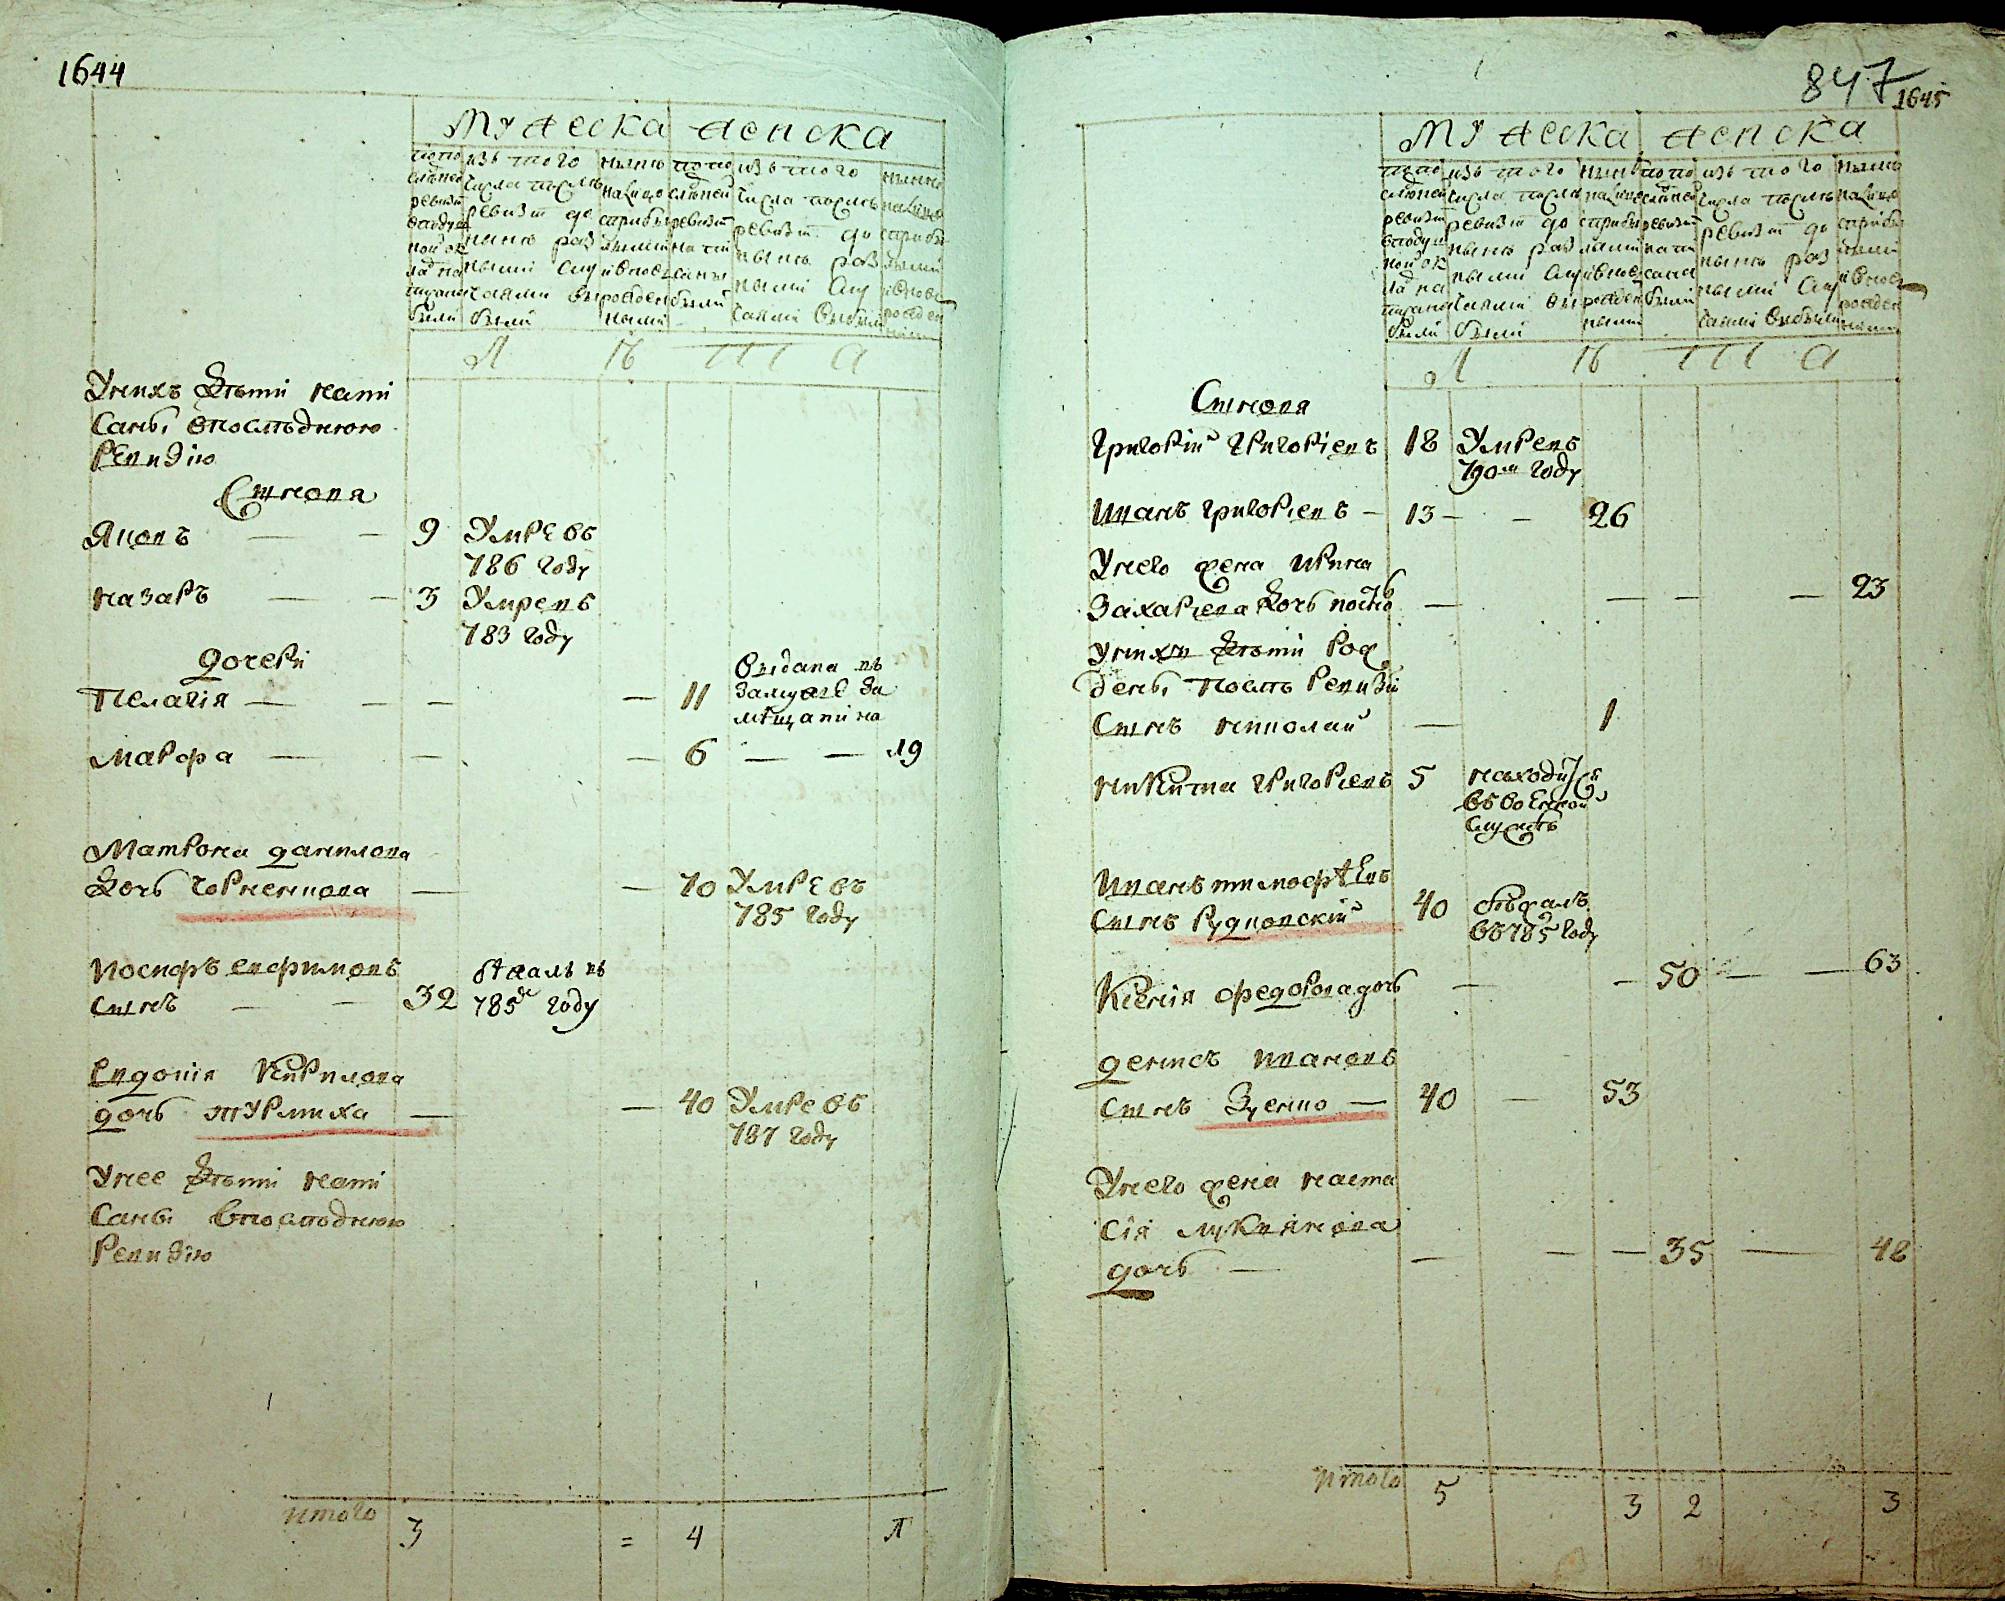 1644
мужеска женска
по по
слѣдней
ревизіи
в подуш
ной ок
ладъ на
писаны
были
изъ того
числа послѣ
ревизіи до
нынѣ раз
ными слу
чаями вы
были
нынѣ
налицо
с прибы
лыми
и вновь
рожден
ными
по по
слѣдней
ревизіи
напи
саны
были
изъ того
числа послѣ
ревизіи до
нынѣ раз
ными слу
чаями выбыли
нынѣ
налицо
с прибы
лыми
и вновь
рожден
ными
Л Ѣ Т А
У нихъ дѣти напи
саны в послѣднюю
ревизію
Сынова
Яковъ — — 9 Умре въ
786 году
назаръ — — 3 Умре въ
783 году
дочери
Пелагія — — — — 11 Выдана въ
замужѣ за
мѣщанина
Марфа — — — 6 — — 19
Матрона данилова
дочь Чорненкова — — 70 Умре въ
785 году
Иосифъ ефимовъ
сынъ — — 32 бѣжалъ въ
785 году
Евдокія Кирилова
дочь турлиха — — 40 Умре въ
787 году
У нее дѣти напи
саны в послѣднюю
ревизію
итого 3 = 4 1
847
1645
мужеска женска
по по
слѣдней
ревизіи
в подуш
ной ок
ладъ на
писаны
были
изъ того
числа послѣ
ревизіи до
нынѣ раз
ными слу
чаями вы
были
нынѣ
налицо
с прибы
лыми
и вновь
рожден
ными
по по
слѣдней
ревизіи
напи
саны
были
изъ того
числа послѣ
ревизіи до
нынѣ раз
ными слу
чаями выбыли
нынѣ
налицо
с прибы
лыми
и вновь
рожден
ными
Л Ѣ Т А
Сынова
Григорій Григоріевъ 18 Умре въ
790м году
Иванъ григориевъ — 13 — — 26
У него жена ирина
Захариева дочь — — — — 23
У нихъ дѣти рож
дены послѣ ревизіи
Сынъ николай — 1
никита григориевъ 5 находится
въ военной
службѣ
Иванъ тимофѣевъ
сынъ Рудковскій 40 бѣжалъ
въ 785 году
Ксенія федорова дочь — — 50 — — 63
денисъ ивановъ
сынъ Зуенко — 40 — 53
У него жена наста
сія лукянова
дочь — — — — 35 — 48
итого 5 3 2 3